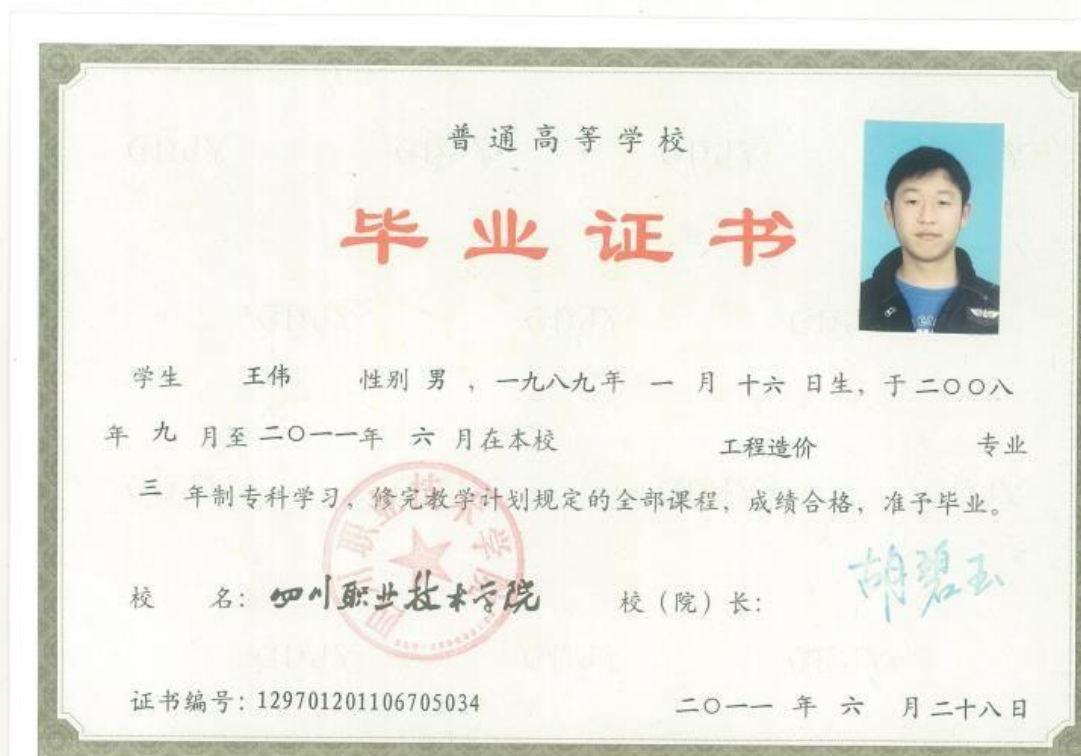 普通高等学校
毕业证书
学生 王伟 性别 男 ，一九八九年 一 月 十六 日生，于二〇〇八
年 九 月至二〇一一年 六 月在本校 工程造价 专业
三 年制专科学习，修完教学计划规定的全部课程，成绩合格，准予毕业。
四川职业技术学院
校 名：四川职业技术学院 校（院）长：胡碧玉
证书编号：129701201106705034 二〇一一 年 六 月二十八日